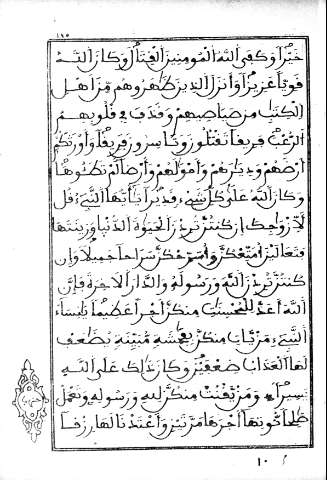 ١٩٥
خَيْرًا وَكَفَى اَللَّهُ اُلْمُومِنِينَ اَلْقِتَالَ وَكَانَ اَللَّهُ
قَوِيًّا عَزِيزًا وَأَنزَلَ اَلذِينَ ظَٰهَرُوهُم مِّنَ اَهْلِ
اِلْكِتَٰبِ مِن صَيَاصِيهِمْ وَقَذَفَ فِي قُلُوبِهِمُ
اُلرُّعْبَ فَرِيقًا تَقْتُلُونَ وَتَاسِرُونَ فَرِيقًا وَأَوْرَثَكُمْ
أَرْضَهُمْ وَدِيَٰرَهُمْ وَأَمْوَٰلَهُمْ وَأَرْضًا لَّمْ تَطَـُٔوهَا
وَكَانَ اَللَّهُ عَلَىٰ كُلِّ شَيْءٍ قَدِيرًا يَٰأَيُّهَا اَلنَّبِيءُ قُل
لِّأَزْوَٰجِكَ إِن كُنتُنَّ تُرِدْنَ اَلْحَيَوٰةَ اَلدُّنْيَا وَزِينَتَهَا
فَتَعَالَيْنَ أُمَتِّعْكُنَّ وَأُسَرِّحْكُنَّ سَرَاحًا جَمِيلًا وَإِن
كُنتُنَّ تُرِدْنَ اَللَّهَ وَرَسُولَهُ وَالدَّارَ اَلَاخِرَةَ فَإِنَّ
اَللَّهَ أَعَدَّ لِلْمُحْسِنَٰتِ مِنكُنَّ أَجْرًا عَظِيمًا يَٰنِسَاءَ
اَلنَّبِيءِ مَنْ يَّاتِ مِنكُنَّ بِفَٰحِشَةٍ مُّبَيِّنَةٍ يُضَٰعَفْ
لَهَا اَلْعَذَابُ ضِعْفَيْنِ وَكَانَ ذَٰلِكَ عَلَى اَللَّهِ
يَسِيرًا وَمَنْ يَّقْنُتْ مِنكُنَّ لِلهِ وَرَسُولِهِ وَتَعْمَلْ
صَٰلِحًا نُّوتِهَا أَجْرَهَا مَرَّتَيْنِ وَأَعْتَدْنَا لَهَا رِزْقًا
10